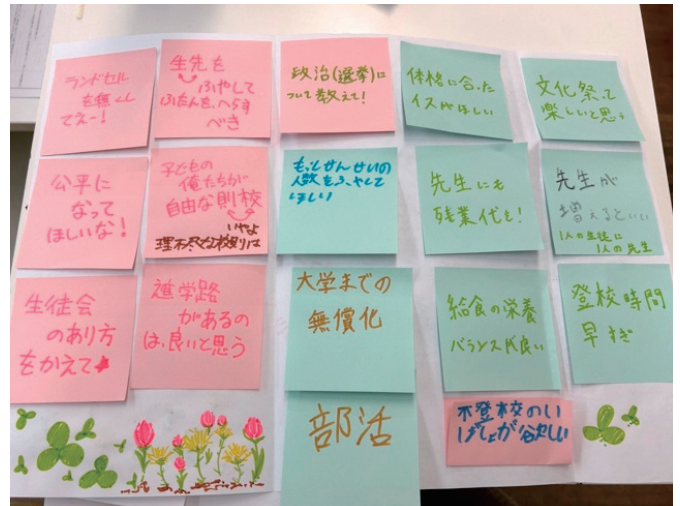 ランドセル
を無くし
てえー!
生先を
ふやして
ふたんを、へらす
べき
政治(選挙)に
ついて教えて!
体格に合った
イスがほしい
文化祭って
楽しいと思う
公平に
なって
ほしいな!
子どもの
俺たちが
自由な則校
いやよ
理不尽な校則りは
もっとせんせいの
人数をふやして
ほしい
先生にも
残業代を!
先生が
増えるといい
1人の生徒に
1人の先生
生徒会
のあり方
をかえて
進学路
があるの
は、良いと思う
大学までの
無償化
給食の栄養
バランスが良い
登校時間
早すぎ
部活
不登校のい
げしょが欲しい